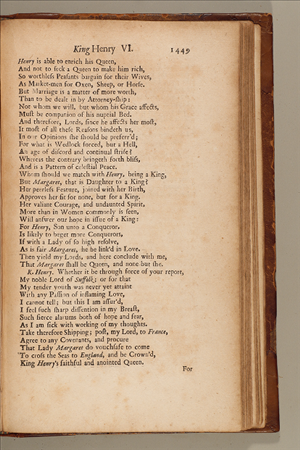 King Henry VI. 1449
Henry is able to enrich his Queen,
And not to seek a Queen to make him rich,
So worthless Peasants bargain for their Wives,
As Market-men for Oxen, Sheep, or Horse.
But Marriage is a matter of more worth,
Than to be dealt in by Attorney-ship:
Not whom we will, but whom his Grace affects,
Must be companion of his nuptial Bed.
And therefore, Lords, since he affects her most,
It most of all these Reasons bindeth us,
In our Opinions she should be preferr'd;
For what is Wedlock forced, but a Hell,
An age of discord and continual strife?
Whereas the contrary bringeth forth bliss,
And is a Pattern of celestial Peace.
Whom should we match with Henry, being a King,
But Margaret, that is Daughter to a King?
Her peerless Feature, joined with her Birth,
Approves her fit for none, but for a King.
Her valiant Courage, and undaunted Spirit,
More than in Women commonly is seen,
Will answer our hope in issue of a King:
For Henry, Son unto a Conqueror,
Is likely to beget more Conquerors,
If with a Lady of so high resolve,
As is fair Margaret, he be link'd in Love.
Then yield my Lords, and here conclude with me,
That Margaret shall be Queen, and none but she.
K. Henry. Whether it be through force of your report,
My noble Lord of Suffolk; or for that
My tender youth was never yet attaint
With any Passion of inflaming Love,
I cannot tell; but this I am assur'd,
I feel such sharp dissention in my Breast,
Such fierce alarums both of hope and fear,
As I am sick with working of my thoughts.
Take therefore Shipping; post, my Lord, to France,
Agree to any Covenants, and procure
That Lady Margaret do vouchsafe to come
To cross the Seas to England, and be Crown'd,
King Henry's faithful and anointed Queen.
For